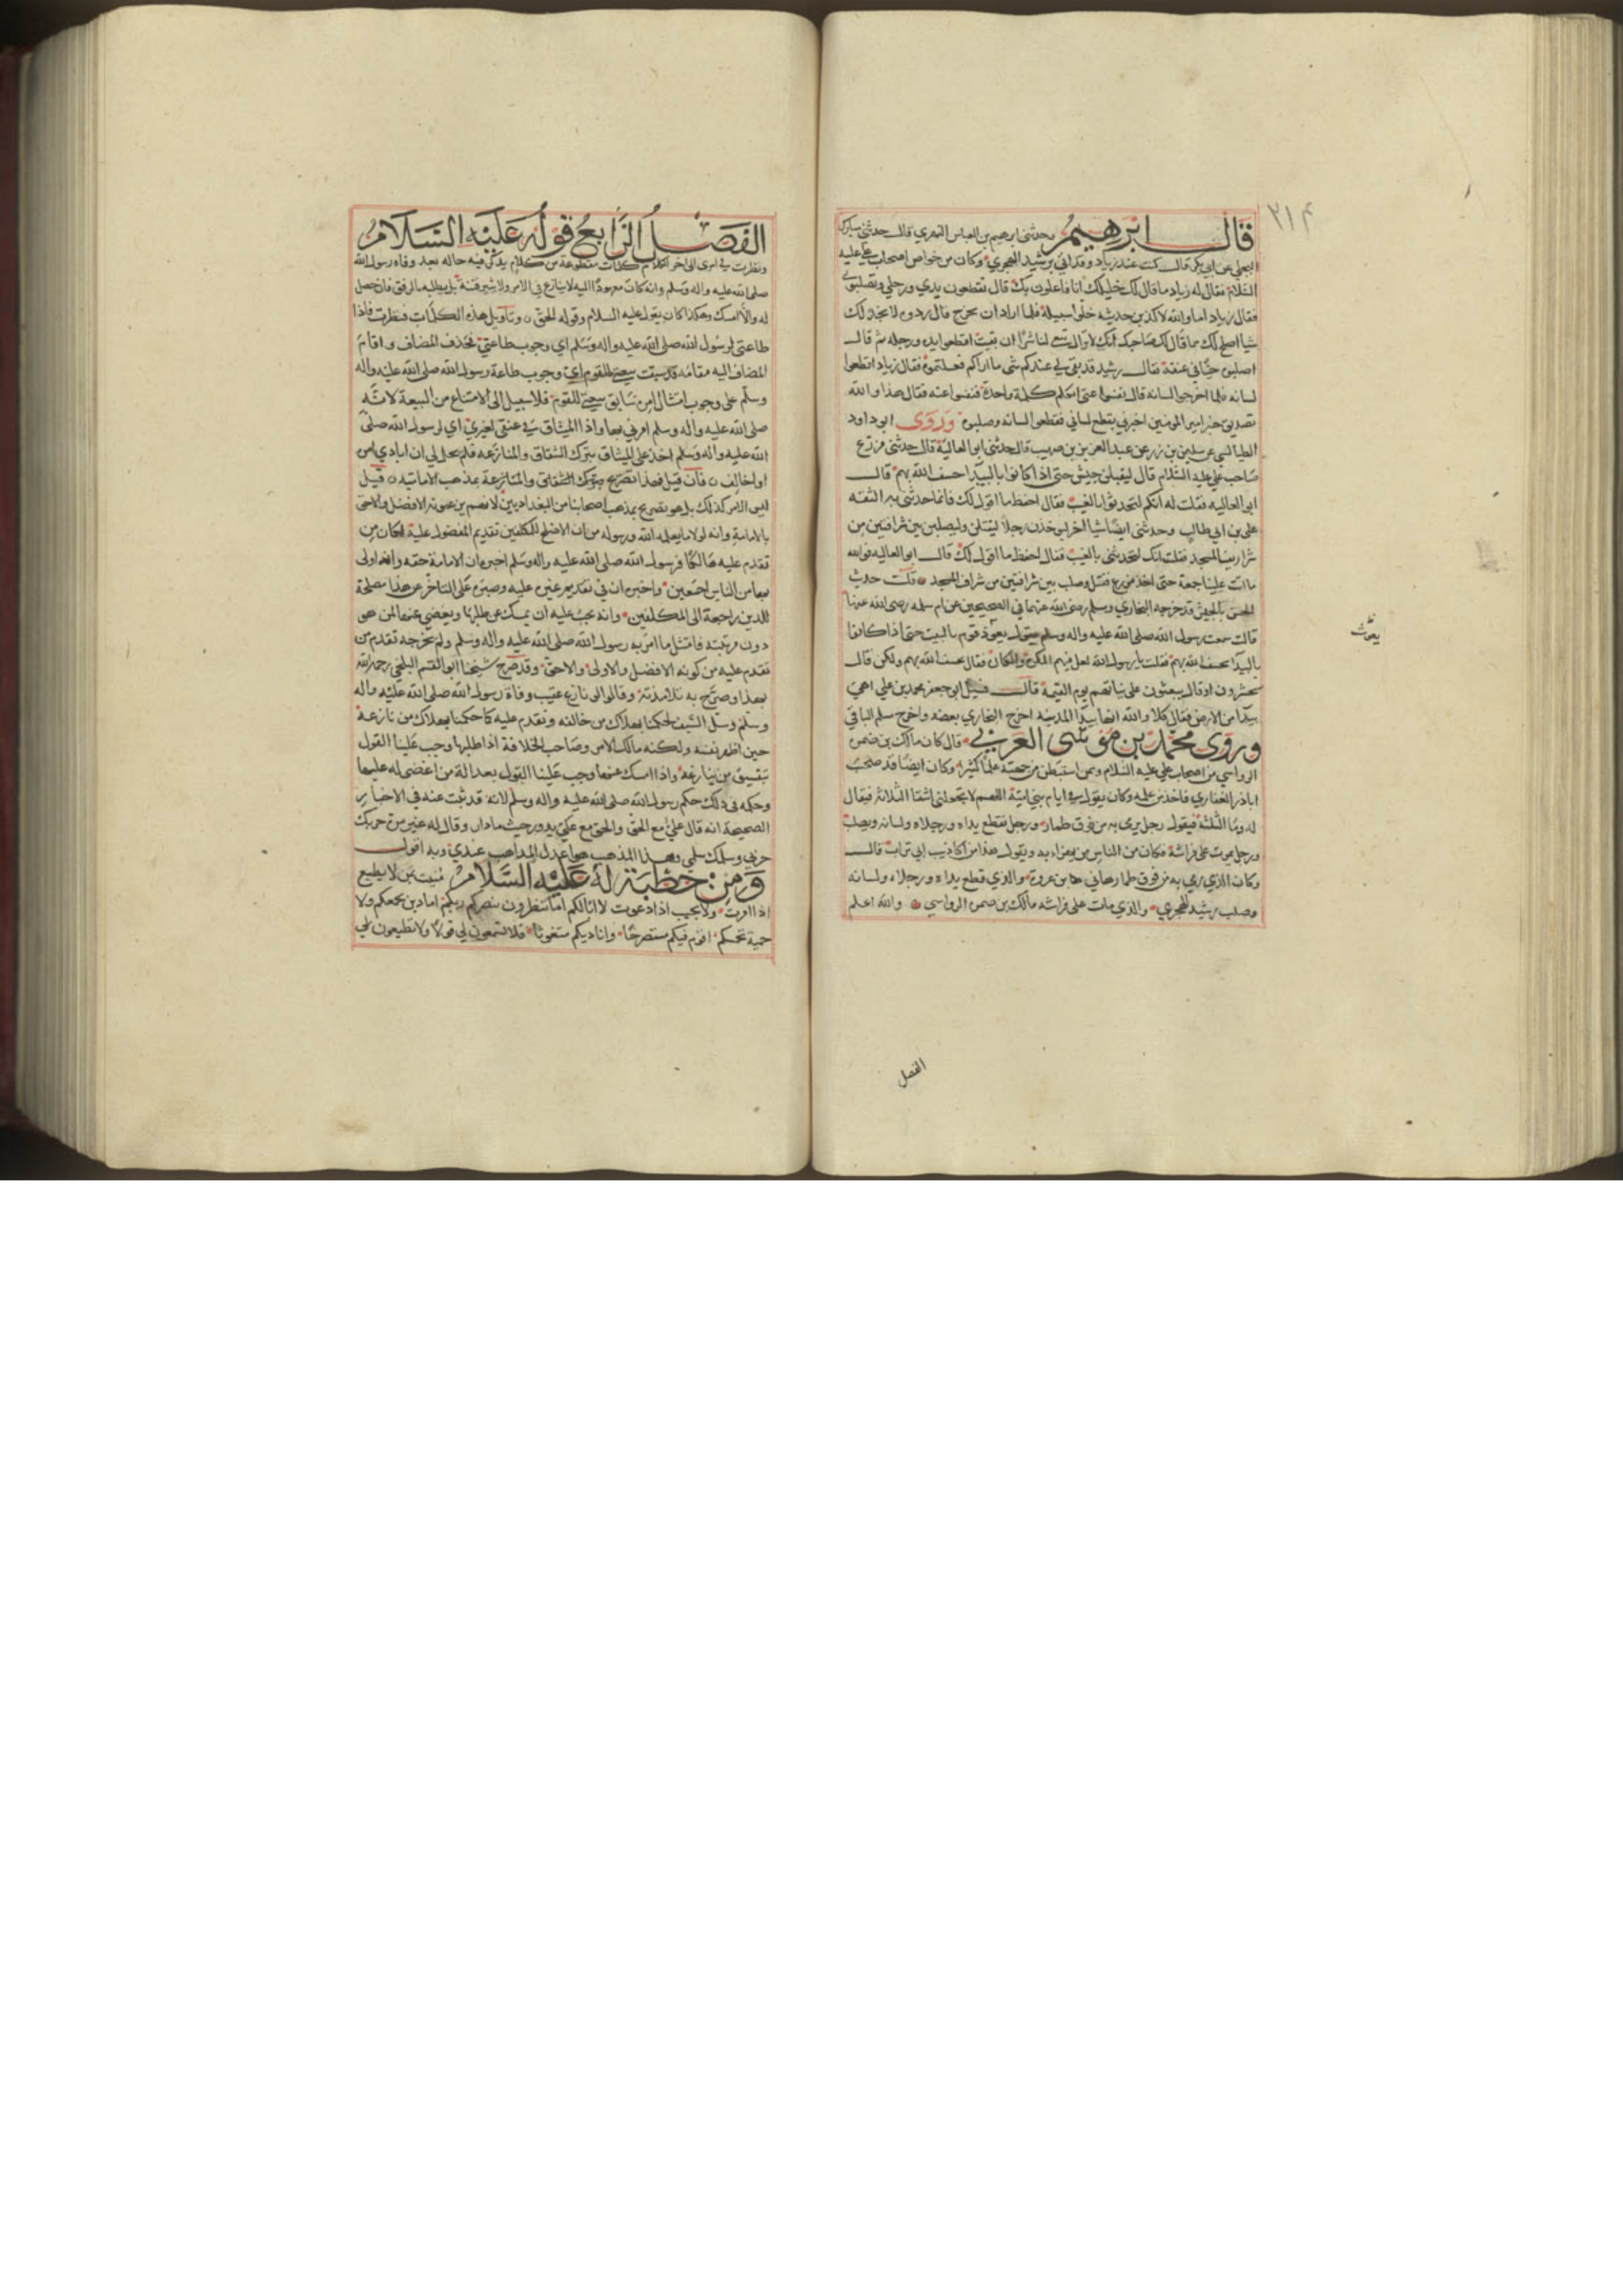 ٢١٤
قال ابرهيم وحدثني ابرهيم بن العباس النهدي قال حدثني مبارك
البجلي عن ابي بكر قال كنت عند زياد وقد اتي برشيد الهجري وكان من خواص اصحاب علي عليه
السلام فقال له زياد ما قال لك خليلك انا فاعلون بك قال تقطعون يدي ورجلي وتصلبوني
فقال زياد اما والله لاكذبن حديثه خلوا سبيله فلما اراد ان يخرج قال ردوه لا نجد لك
شيا اصلح لك مما قال لك صاحبك انك لا تزال تبغي لنا شرا ان بقيت اقطعوا يديه ورجليه ثم قال
اصلبوه خنقا في عنقه فقال رشيد قد بقي لي عندكم شي ما اراكم فعلتموه فقال زياد اقطعوا
لسانه فلما اخرجوا لسانه قال نفسوا عني اتكلم كلمة واحدة فنفسوا عنه فقال هذا والله
تصديق خبر امير المومنين اخبرني بقطع لساني فقطعوا لسانه وصلبوه وروى ابو داود
الطيالسي عن سليمن بن زريق عن عبد العزيز بن صهيب قال حدثني ابو العالية قال حدثني مزرع
صاحب علي عليه السلام قال ليقبلن جيش حتى اذا كانوا بالبيدا خسف الله بهم قال
ابو العاليه فقلت له انكم لتحدثونا بالغيب فقال احفظ ما اقول لك فانما حدثني به الثقه
علي بن ابي طالب وحدثني ايضا شيا اخر ليوخذن رجلا ليقتلن وليصلبن بين شرافتين من
شراريف المسجد فقلت انك لتحدثني بالغيب فقال احفظ ما اقول لك قال ابو العاليه فوالله
ما اتت علينا جمعة حتى اخذ مزرع فقتل وصلب بين شرافتين من شراف المسجد قلت حديث
الخسف بالجيش قد خرجه البخاري ومسلم رضي الله عنهما في الصحيحين عن ام سلمه رضي الله عنها
قالت سمعت رسول الله صلى الله عليه واله وسلم يقول يعوذ قوم بالبيت حتى اذا كانوا
بالبيدا خسف الله بهم فقلت يا رسول الله لعل فيهم المكره والكان فقال يخسف الله بهم ولكن قال
يحشرون او قال يبعثون على نياتهم يوم القيمة قال فسئل ابو جعفر محمد بن علي اهي
بيدا من الارض فقال كلا والله انها بيدا المدينه اخرج البخاري بعضه واخرج مسلم الباقي
وروى محمد بن موسى العنزي قال كان مالك بن ضمن
الرواسي من اصحاب علي عليه السلام وممن استبطن من جهته علما كثيرا وكان ايضا قد صحب
اباذر الغفاري فاخذ من علمه وكان يقول في ايام بني امية اللهم لا تجعلني اشقا الثلاثه فيقال
له وما الثلثة فيقول رجل يرمى به من فوق طمار ورجل تقطع يداه ورجلاه ولسانه ويصلب
ورجل يموت على فراشه فكان من الناس من يهزاء به ويقول هذا من اكاذيب ابي تراب قال
وكان الذي رمي به من فوق طمار هاني هابن عروة والذي قطع يداه ورجلاه ولسانه
وصلب رشيد الهجري والذي مات على فراشه مالك بن ضمن الرواسي والله اعلم
يعوذ
الفصل
الفصل الرابع قوله عليه السلام
ونظرت في امري الى اخر الكلام كلمات مقطوعة من كلام يذكر فيه حاله بعد وفاه رسول الله
صلى الله عليه واله وسلم وانه كان معهودا اليه لا ينازع في الامر ولا يثير فتنة بل يطلبه بالرفق فان حصل
له والا امسك وهكذا كان يقول عليه السلام وقوله الحق وتاويل هذه الكلمات فنظرت فاذا
طاعتي لرسول الله صلى الله عليه واله وسلم اي وجوب طاعتي فحذف المضاف واقام
المضاف اليه مقامه قد سبقت بيعتي للقوم اي وجوب طاعة رسول الله صلى الله عليه واله
وسلم علي ووجوب امتثال امره سابق بيعتي للقوم فلا سبيل الى الامتناع من البيعة لانه
صلى الله عليه واله وسلم امرني بها واذا الميثاق في عنقي لغيري اي لرسول الله صلى
الله عليه واله وسلم اخذ علي الميثاق بترك الشقاق والمنازعه فلم يحل لي ان اتعدي امره
او اخالفه فان قيل فهذا تصريح بترك الشقاق والمنازعة بمذهب الاماميه قيل
ليس الامر كذلك بل هو تصريح بمذهب اصحابنا من البغداديين لانهم يزعمون انه الافضل والاحق
بالامامة وانه لولا ما يعلمه الله ورسوله من ان الاصلح للمكلفين تقديم المفضول عليه لكان من
تقدم عليه هالكا فرسول الله صلى الله عليه واله وسلم اخبره ان الامامة حقه وانه اولى
بها من الناس اجمعين واخبره ان في تقديم غيره عليه وصبره على التاخر عن هذا مصلحة
للدين راجعة الى المكلفين وانه يجب عليه ان يمسك عن طلبها ويغضي عنها لمن هو
دون مرتبته فامتثل ما امر به رسول الله صلى الله عليه واله وسلم ولم يخرجه تقدم من
تقدم عليه من كونه الافضل والاولى والاحق وقد صرح شيخنا ابو القسم البلخي رحمه الله
بهذا وصرح به تلامذته وقالوا لو نازع عقيب وفاة رسول الله صلى الله عليه واله
وسلم وسل السيف لحكمنا بهلاك من خالفه وتقدم عليه كما حكمنا بهلاك من نازعه
حين اظهر نفسه ولكنه مالك الامر وصاحب الخلافة اذا طلبها وجب علينا القول
بتفسيق من ينازعه واذا امسك عنها وجب علينا القول بعدالة من اغضى له عليها
وحكمه في ذلك حكم رسول الله صلى الله عليه واله وسلم لانه قد ثبت عنه في الاخبار
الصحيحة انه قال علي مع الحق والحق مع علي يدور حيث ما دار وقال له غير مرة حربك
حربي وسلمك سلمي وهذا المذهب هو اعدل المذاهب عندي وبه اقول
ومن خطبة له عليه السلام منيت بمن لا يطيع
اذا امرت ولا يجيب اذا دعوت لا ابا لكم اما تنتظرون بنصركم ربكم اما دين يجمعكم ولا
حمية تحمسكم اقوم فيكم مستصرخا واناديكم متغوثا فلا تسمعون لي قولا ولا تطيعون لي